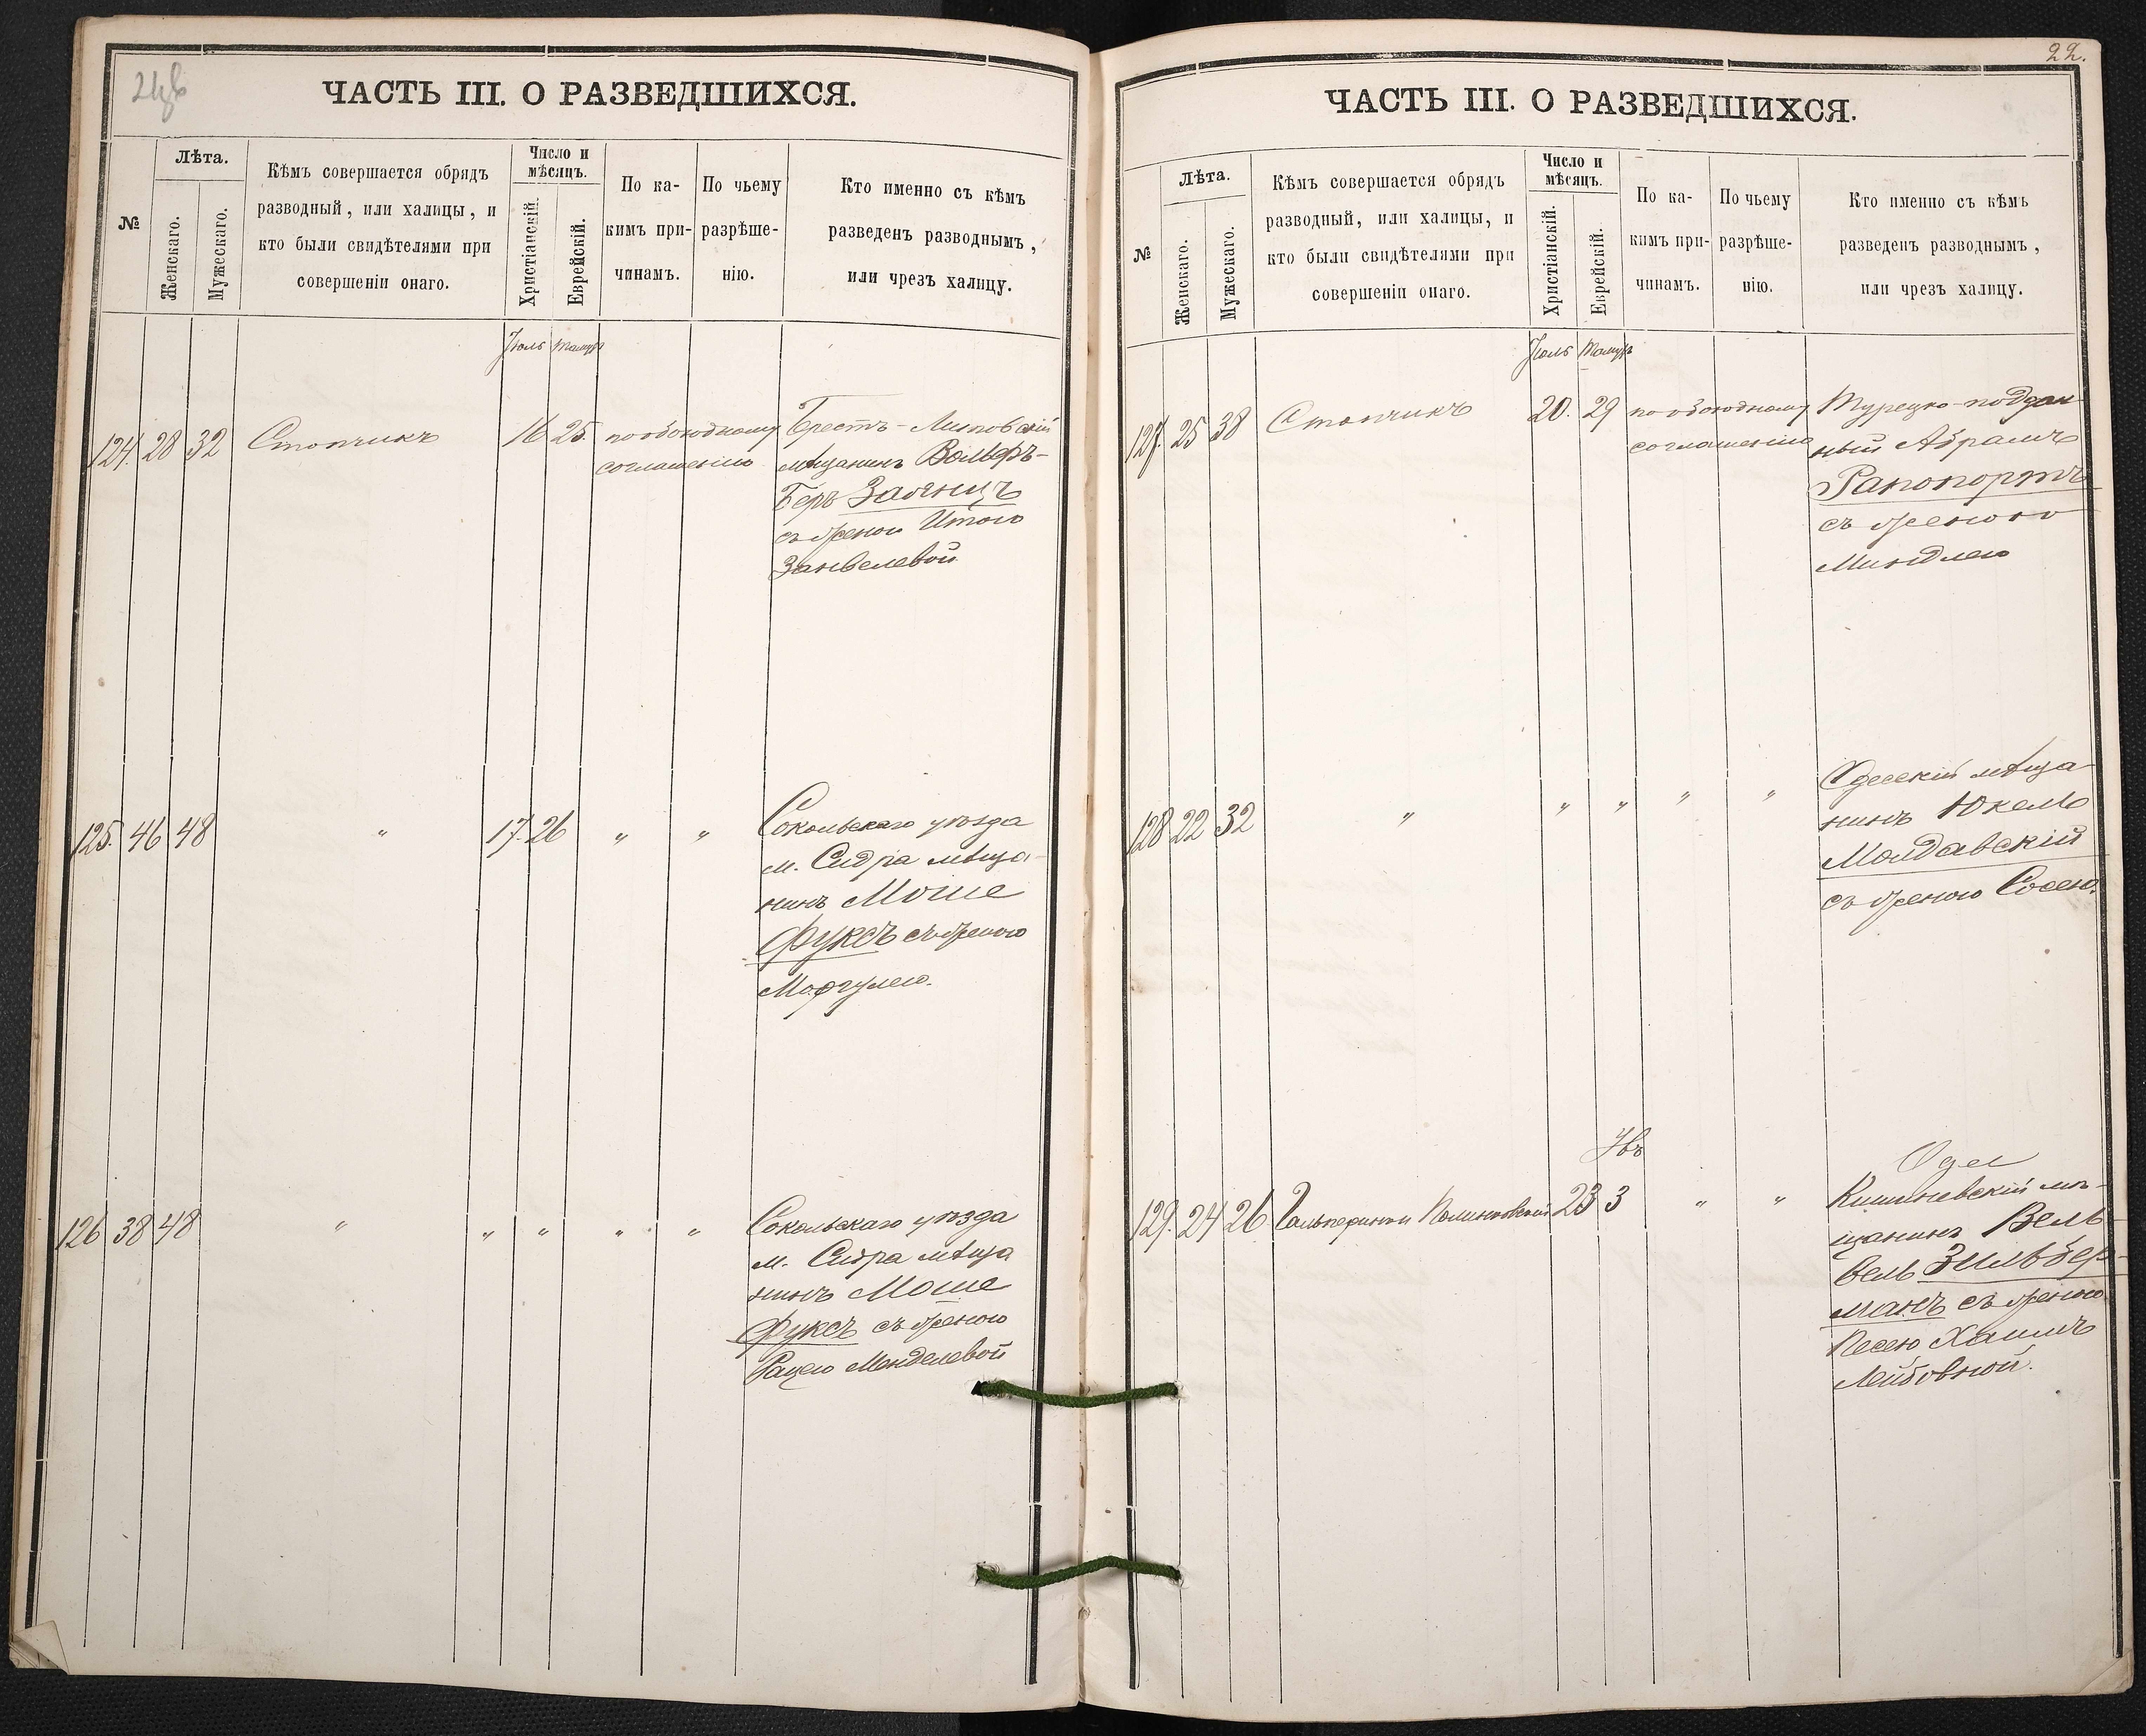 ЧАСТЬ III. О РАЗВЕДШИХСЯ.
№
Лѣта.
Женскаго.
Мужескаго.
Кѣмъ совершается обрядъ
разводный, или халицы, и
кто были свидѣтелями при
совершеніи онаго.
Число и
мѣсяцъ.
Христіанскій.
Еврейскій.
По ка-
кимъ при-
чинамъ.
По чьему
разрѣше-
нію.
Кто именно съ кѣмъ
разведенъ разводнымъ,
или чрезъ халицу.
Іюль Тамуз
124. 28 32 Стопчикъ 16 25. по обоюдному
соглашенію
Брестъ-Литовскій
мѣщанинъ Вольфъ-
Беръ Заяницъ
съ женою Итою
Занвелевой
125. 46 48 " 17. 26 " "
Сокольскаго уѣзда
м. Сидра мѣща-
нинъ Моше
Фуксъ съ женою
126 38 48 " " " " "
Сокольскаго уѣзда
м. Сидра мѣща
нинъ Моше
Фуксъ съ женою
Менделевой
22.
ЧАСТЬ III. О РАЗВЕДШИХСЯ.
№
Лѣта.
Женскаго.
Мужескаго.
Кѣмъ совершается обрядъ
разводный, или халицы, и
кто были свидѣтелями при
совершеніи онаго.
Число и
мѣсяцъ.
Христіанскій.
Еврейскій.
По ка-
кимъ при-
чинамъ.
По чьему
разрѣше-
нію.
Кто именно съ кѣмъ
разведенъ разводнымъ,
или чрезъ халицу.
Іюль Тамуз
127. 25 38 Стопчикъ 20. 29 по обоюдному
соглашенію
Турецко-поддан
ный Абрамъ
Рапопортъ
съ женою
Миндлею
128 22 32 " " " " "
Одесскій мѣща
нинъ Юкель
Молдавскій
съ женою Сосею.
Увъ
129. 24 26 23 3 " "
Одес
Кишиневскій мѣ-
щанинъ Вель-
вель Зильбер-
манъ съ женою
Песею Хаимъ
Лейбовной.